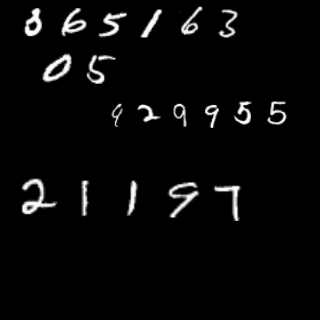 865163
05
929955
21197